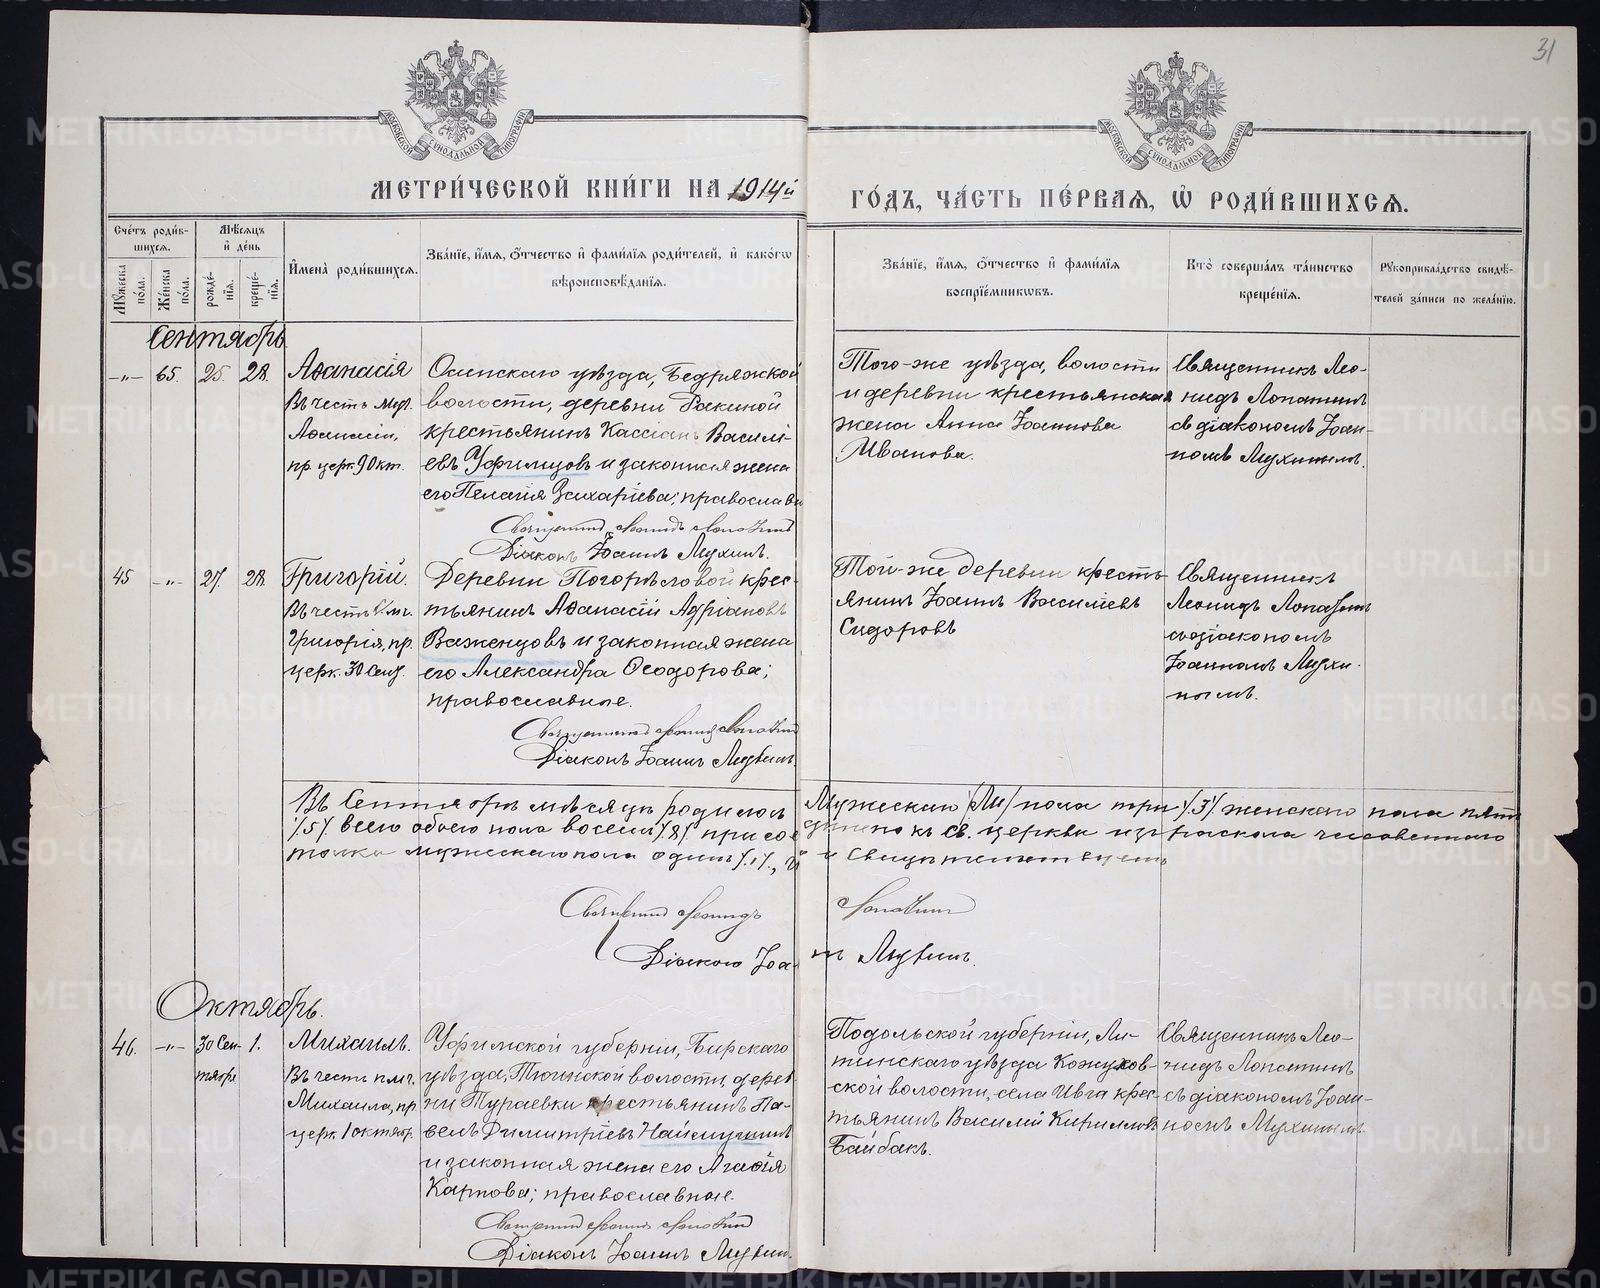 31
МОСКОВСКОЙ СѴНОДАЛЬНОЙ ТИПОГРАФІИ
МОСКОВСКОЙ СѴНОДАЛЬНОЙ ТИПОГРАФІИ
МЕТРИ́ЧЕСКОЙ КНИ́ГИ НА 1914й ГО́ДЪ, ЧА́СТЬ ПЕ́РВАѦ, Ѡ҆ РОДИ́ВШИХСѦ.
Сче́тъ роди́вшихся.
Мѣ́сяцъ и҆ де́нь
И҆мена̀ роди́вшихся.
Зва́нїе, и҆́мя, ѻ҆́тчество и҆ фами́лїя роди́телей, и҆ како́гѡ
вѣроисповѣ́данїя.
Зва́нїе, и҆́мя, ѻ҆́тчество и҆ фами́лїя
воспрїе́мникѡвъ.
Кто̀ соверша́лъ та́инство
креще́нїя.
Рꙋкоприкла́дство свидѣ́-
телей за́писи по жела́нїю.
Мꙋ́жеска по́ла.
Же́нска по́ла.
рожде́-нїя.
креще́-нїя.
Сентябрь
-"- 65. 25. 28. Аѳанасія
Въ честь муч.
Аѳанасіи,
пр. церк. 9 Окт.
Осинскаго уѣзда, Бедряжской
волости, деревни Ракиной
крестьянинъ Кассіанъ Василі-
евъ Уфимцовъ и законная жена
его Пелагія Захаріева; православн
Священникъ Леонидъ Лопатинъ
Діаконъ Іоаннъ Мухинъ.
Того-же уѣзда, волости
и деревни крестьянская
жена Анна Іоаннова
Иванова.
Священникъ Лео-
нидъ Лопатинъ
съ діакономъ Іоан-
номъ Мухинымъ.
45 -"- 27. 28. Григорій.
Въ честь
Григорія, пр.
церк. 30 Сент.
Деревни Погорѣловой крес-
тьянинъ Аѳанасій Адріановъ
Важенцовъ и законная жена
его Александра Ѳеодорова;
православные.
Священникъ Леонидъ Лопатинъ
Діаконъ Іоаннъ Мухинъ.
Той-же деревни кресть-
янинъ Іоаннъ Василіевъ
Сидоровъ
Священникъ
Леонидъ Лопатинъ
съ діакономъ
Іоанномъ Мухи-
нымъ.
Въ Сентябрѣ мѣсяцѣ родилось Мужескаго пола три /3/ женскаго пола пять
/5/ всего обоего пола восемь /8/ присоединено къ св. церкви изъ раскола часовеннаго
толка мужескаго пола одинъ /1/,
Священникъ Леонидъ Лопатинъ
Діаконъ Іоаннъ Мухинъ.
Октябрь.
46. -"- 30 Сен-тября 1. Михаилъ.
Въ честь
Михаила, пр.
церк. 1 октябр.
Уфимской губерніи, Бирскаго
уѣзда, Тюинской волости, дерев
ни Тураевки крестьянинъ Па-
велъ Димитріевъ Наймушинъ
и законная жена его Агафія
Карпова; православные.
Священникъ Леонидъ Лопатинъ
Діаконъ Іоаннъ Мухинъ.
Подольской губерніи, Ли-
тинскаго уѣзда Кожухов-
ской волости, села Ивча крес-
тьянинъ Василій Кирилловъ
Байбакъ.
Священникъ Лео-
нидъ Лопатинъ
съ діакономъ Іоан-
номъ Мухинымъ.
METRIKI.GASO-URAL.RU